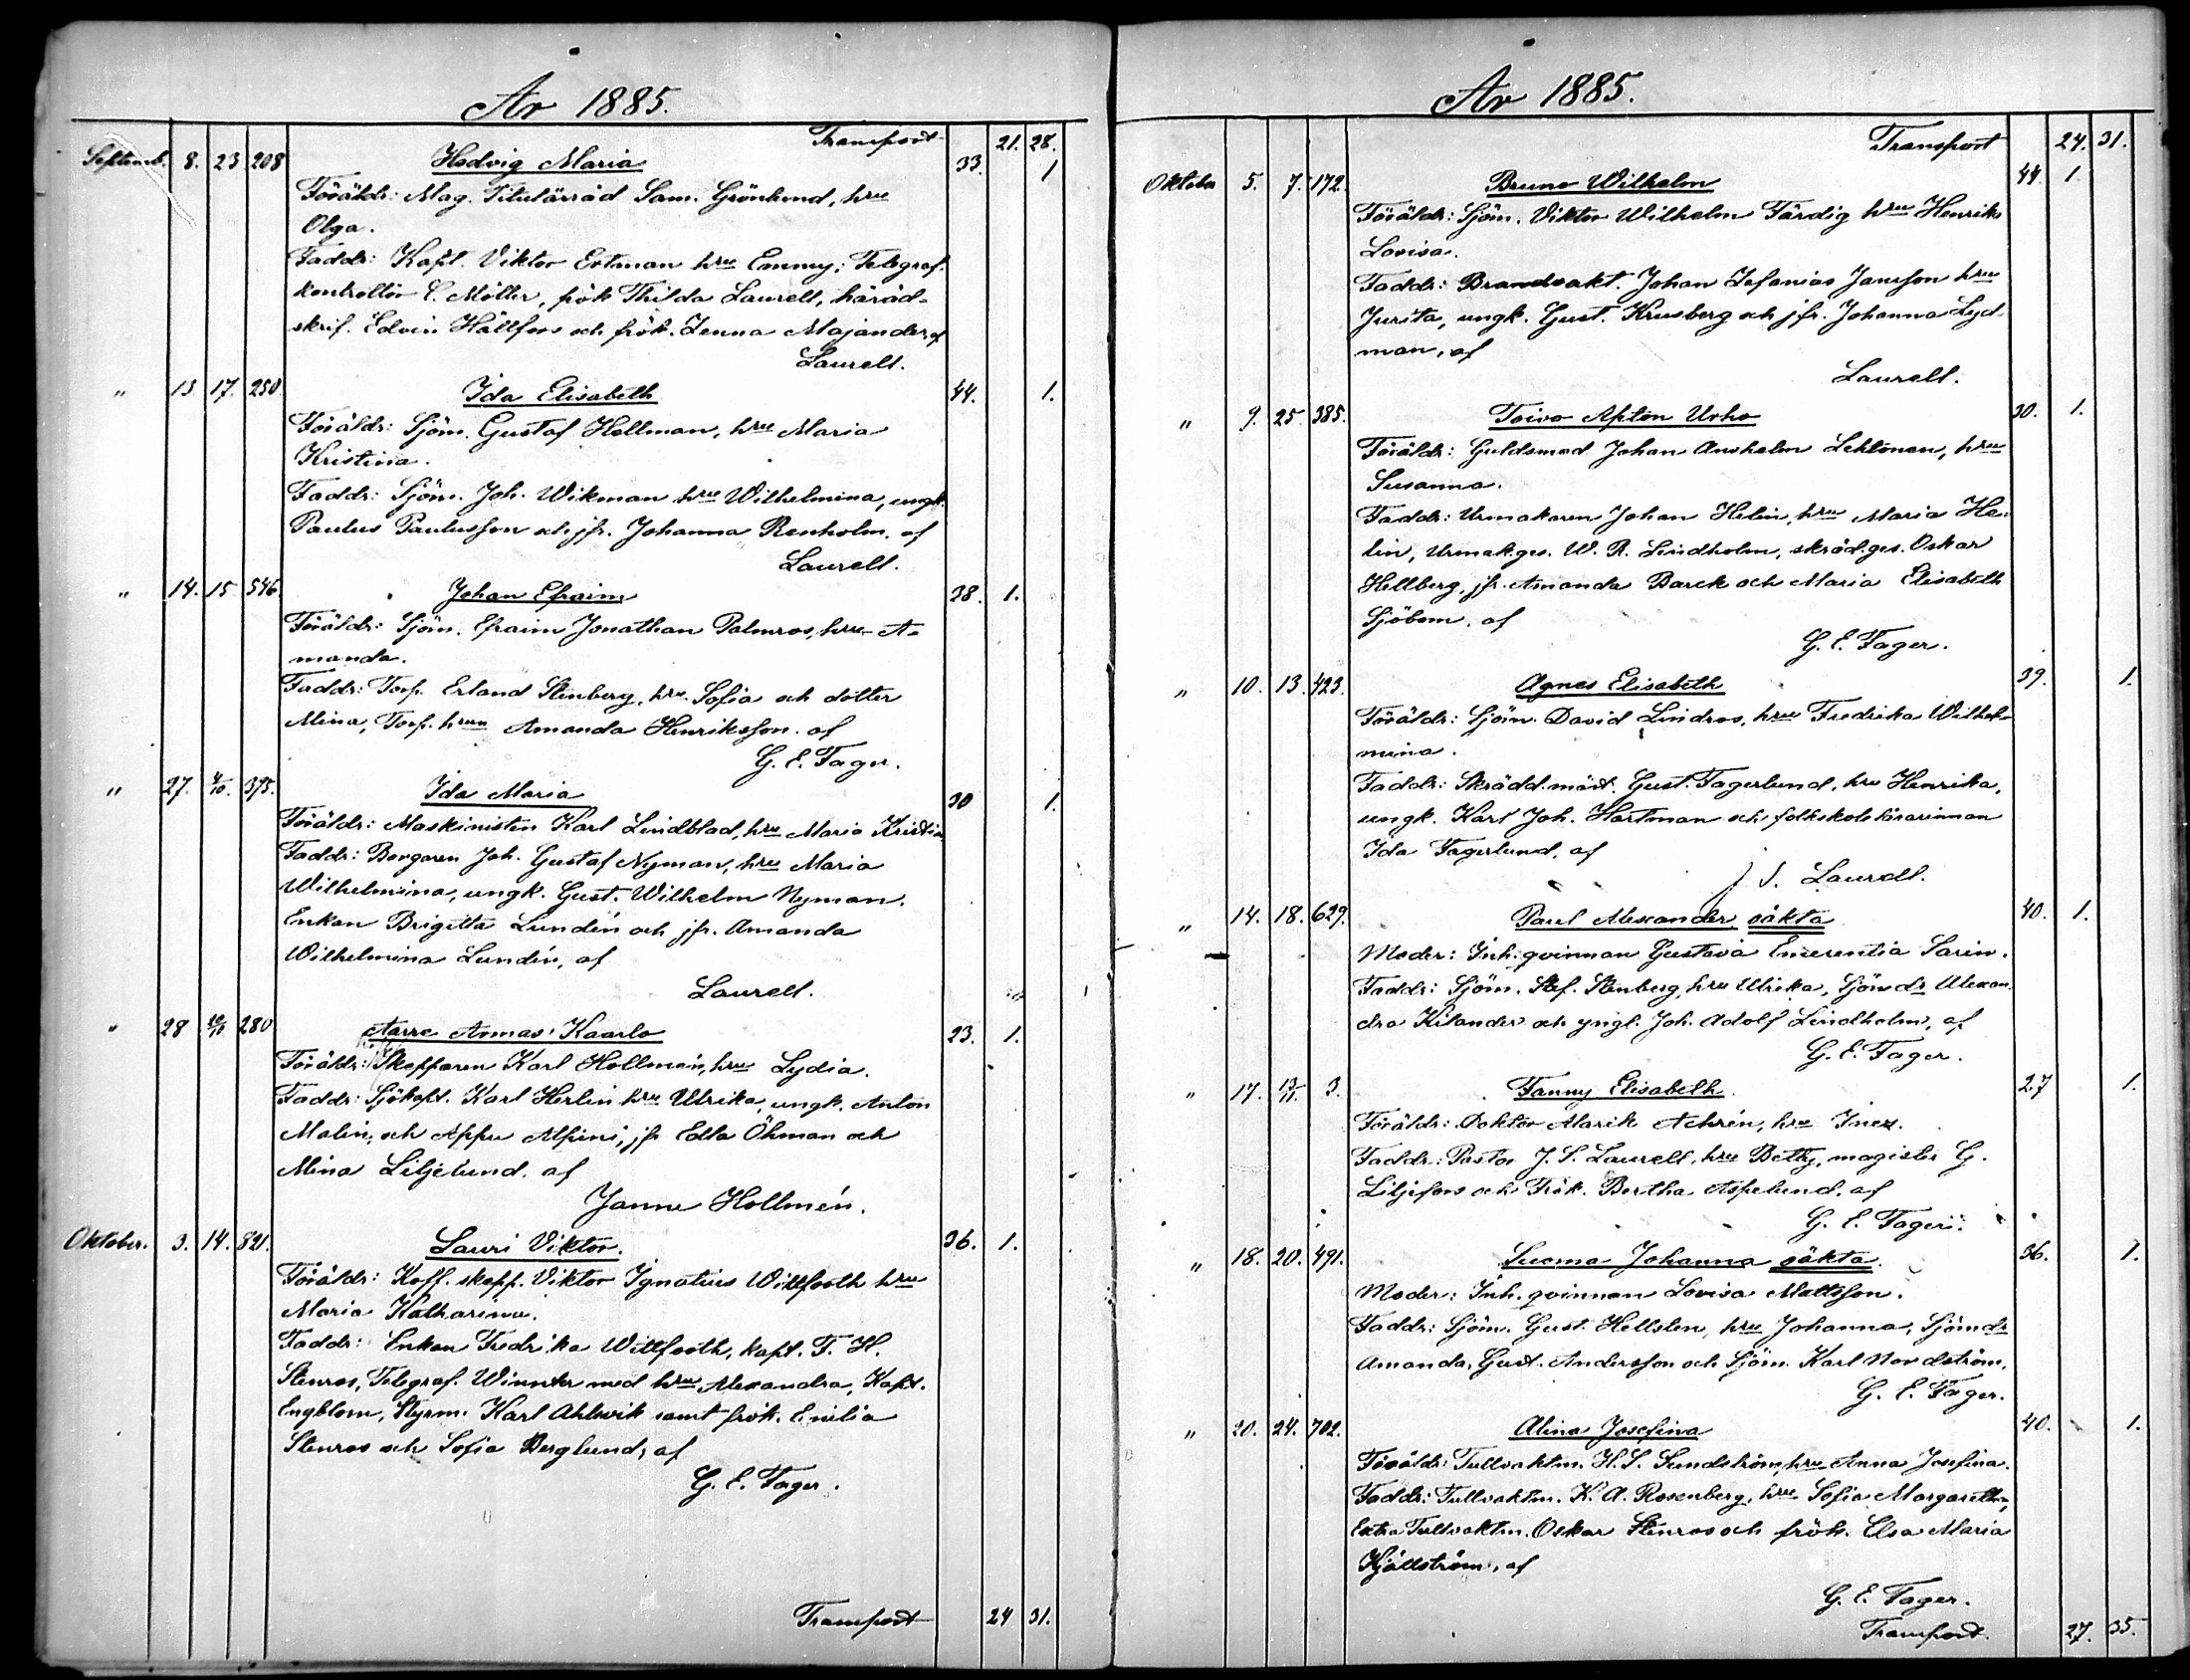 År 1885.
Transport 21. 28.
Septemb. 8. 23 208 Hedvig Maria 33. 1
Föräldr: Mag. Titulärråd Sam. Grönlund, hru
Olga.
Faddr: Kapt. Viktor Ertman hru Emmy; Telegraf.
kontrollör C. Möller, frök Thilda Laurell, härad-
skrif. Edvin Hällfors och frök. Jenna Majander, af
Laurell.
" 13 17. 250. Ida Elisabeth 44. 1.
Föräldr: Sjöm. Gustaf Hellman, hru Maria
Kristina.
Faddr: Sjöm. Joh. Wikman hru Wilhelmina, ungk.
Paulus Paulusson och jfr. Johanna Renholm. af
Laurell.
" 14. 15 546. Johan Efraim 28. 1.
Föräldr: Sjöm. Efraim Jonathan Palmros, hru A-
manda.
Faddr: Torp. Erland Stenberg, hru. Sofia och dotter
Mina, Torp. hrun Amanda Henriksson. af
G. E. Fager.
" 27. 4/10. 375. Ida Maria 30 1.
Föräldr: Maskinisten Karl Lindblad, hru Maria Kristin
Faddr: Borgaren Joh. Gustaf Nyman, hru Maria
Wilhelmina, ungk. Gust. Wilhelm Nyman.
Enkan Brigitta Lundén och jfr. Amanda
Wilhelmina Lundén, af
Laurell.
" 28 280 Aarre Armas Kaarlo 23. 1.
Föräldr: Skepparen Karl Hollmén, hru Lydia.
Faddr: Sjökapt. Karl Herlin hru Ulrika, ungk. Anton
Malin, och Appu Alfini, jfr Edla Öhman och
Mina Liljelund. af
Janne Hollmén.
Oktober. 3. 14. 821. Lauri Viktor. 36. 1.
Föräldr: Koff. skepp. Viktor Ignatius Wittfooth hru
Maria Katharina.
Faddr: Enkan Fredrika Wittfooth, kapt. F. H.
Stenros, Telegraf. Winter med hru Alexandra, Kapt.
Engblom, Styrm. Karl Ahlsvik samt frök. Emilia
Stenros och Sofia Berglund, af
G. E. Fager.
Transport 24 31.
År 1885.
Transport 24. 31.
Oktober 5. 7. 172. Bruno Wilhelm 44. 1.
Föräldr: Sjöm. Viktor Wilhelm Färdig hru Henrika
Lovisa.
Faddr: Brandvakt. Johan Zefanias Jansson hru
Jurita, ungk. Gust. Krusberg och jfr. Johanna Lyd-
man, af
Laurell.
" 9. 25. 385. Toivo Anton Urho 30. 1.
Föräldr: Guldsmed Johan Anshelm Lehtonen, hru
Susanna.
Faddr: Urmakaren Johan Helin, hru Maria He-
lin, Urmak.ges. W. R. Lindholm, skräd.ges. Oskar
Hellberg, jfr. Amanda Barck och Maria Elisabeth
Sjöbom. af
G. E. Fager.
" 10. 13. 423. Agnes Elisabeth 39. 1.
Föräldr: Sjöm. David Lindros, hru Fredrika Wilhel-
mina.
Faddr: Skrädd. mäst. Gust. Fagerlund, hru Henrika,
ungk. Karl Joh. Hartman och folkskolelärarinnan
Ida Fagerlund, af
J. S. Laurell.
" 14. 18. 629. Paul Alexander, oäkta 40. 1.
Moder: Inh. qvinnan Gustava Emerentia Sarin.
Faddr: Sjöm. Stef. Stenberg, hru Ulrika, Sjöm dr Alexan-
dra Kilander och yngl. Joh. Adolf Lindholm, af
G. E. Fager.
" 17. 13/11. 3. Fanny Elisabeth 27 1.
Föräldr: Doktor Alarik Achrén, hru Inez.
Faddr: Pastor J. S. Laurell, hru Betty, magister G.
Liljefors och Frök. Bertha Aspelund, af
G. E. Fager.
" 18. 20. 491. Suoma Johanna oäkta. 36. 1.
Moder: Inh. qvinnan Lovisa Mattsson.
Faddr: Sjöm. Gust. Hellsten, hru Johanna, Sjöm dr
Amanda, Gust. Andersson och Sjöm. Karl Nordström.
G. E. Fager.
" 20. 24. 702. Alina Josefina 40. 1.
Föräldr: Tullvaktm. H. S. Sundström, hru Anna Josefina.
Faddr: Tullvaktm. K. A. Rosenberg, hru Sofia Margaretha,
Extra Tullvaktm. Oskar Stenros och frök. Elsa Maria
Kjällström, af
G. E. Fager.
Transport. 27. 35.